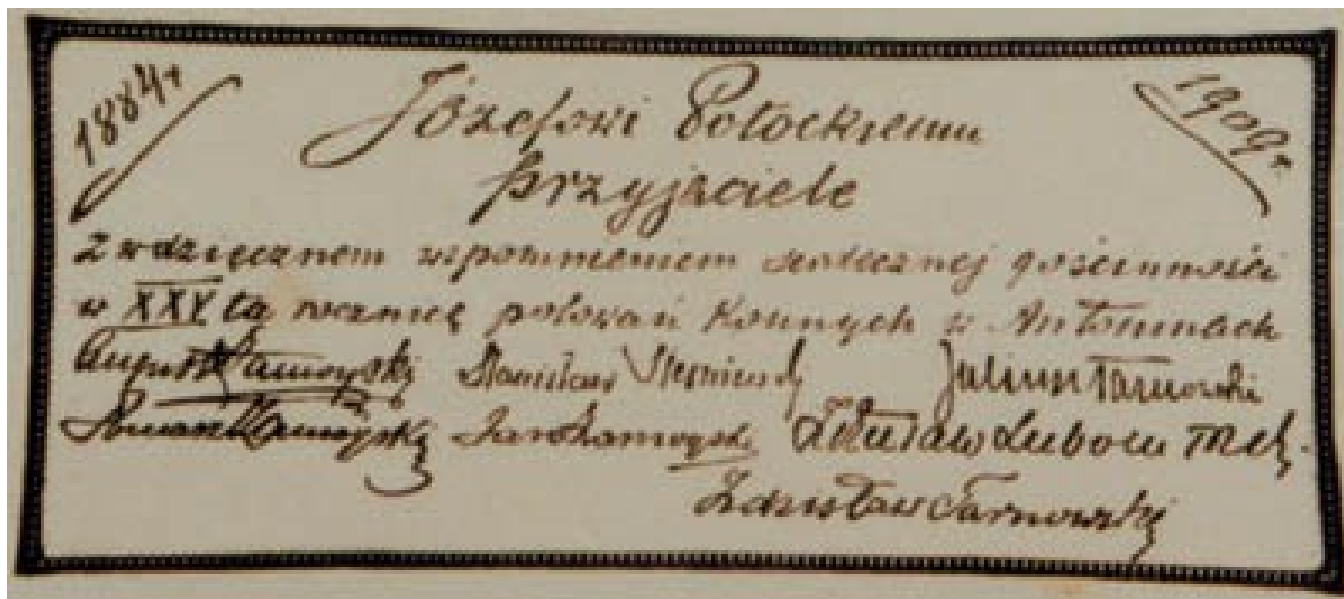 1884r 1909r
Józefowi Potockiemu
Przyjaciele
z wdzięcznem wspomnieniem serdecznej gościnności
w XXVtą rocznicę polowań Konnych w Antoninach
August Zamoyski Stanisław Juliusz Tarnowski
Tomasz Zamoyski Jan Zamoyski Zdzisław Lubom
Zdzisław Tarnowski